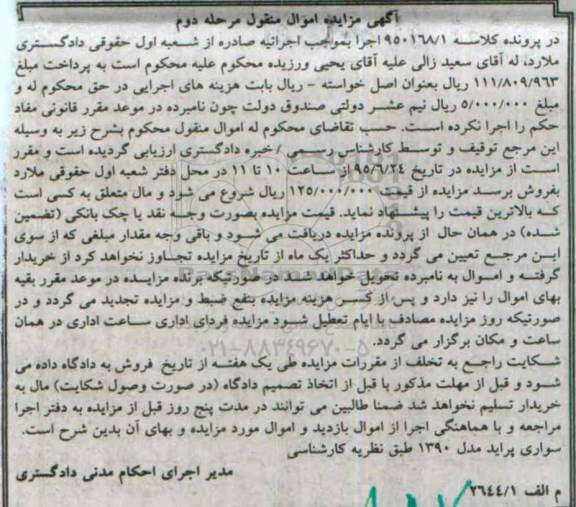 آگهی مزایده اموال منقول مرحله دوم
در پرونده کلاسه ۹۵۰۱۶۸/۱ اجرا بموجب اجرائیه صادره از شعبه اول حقوقی دادگستری
ملارد، له آقای سعید زالی علیه آقای یحیی ورزیده محکوم علیه محکوم است به پرداخت مبلغ
۱۱۱/۸۰۹/۹۶۳ ریال بعنوان اصل خواسته - ریال بابت هزینه های اجرایی در حق محکوم له و
مبلغ ۵/۰۰۰/۰۰۰ ریال نیم عشر دولتی صندوق دولت چون نامبرده در موعد مقرر قانونی مفاد
حکم را اجرا نکرده است. حسب تقاضای محکوم له اموال منقول محکوم بشرح زیر به وسیله
این مرجع توقیف و توسط کارشناس رسمی / خبره دادگستری ارزیابی گردیده است و مقرر
است از مزایده در تاریخ ۹۵/۶/۲۴ از ساعت ۱۰ تا ۱۱ در محل دفتر شعبه اول حقوقی ملارد
بفروش برسد مزایده از قیمت ۱۲۵/۰۰۰/۰۰۰ ریال شروع می شود و مال متعلق به کسی است
که بالاترین قیمت را پیشنهاد نماید. قیمت مزایده بصورت وجه نقد یا چک بانکی (تضمین
شده) در همان حال از برنده مزایده دریافت می شود و باقی وجه مقدار مبلغی که از سوی
این مرجع تعیین می گردد و حداکثر یک ماه از تاریخ مزایده تجاوز نخواهد کرد از خریدار
گرفته و اموال به نامبرده تحویل خواهد شد در صورتیکه برنده مزایده در موعد مقرر بقیه
بهای اموال را نیز دارد و پس از کسر هزینه مزایده بنفع ضبط و مزایده تجدید می گردد و در
صورتیکه روز مزایده مصادف با ایام تعطیل شود مزایده فردای اداری ساعت اداری در همان
ساعت و مکان برگزار می گردد.
۰۲۱-۸۸۳۴۹۶۷۰-۵
شکایت راجع به تخلف از مقررات مزایده طی یک هفته از تاریخ فروش به دادگاه داده می
شود و قبل از مهلت مذکور با قبل از اتخاذ تصمیم دادگاه (در صورت وصول شکایت) مال به
خریدار تسلیم نخواهد شد ضمنا طالبین می توانند در مدت پنج روز قبل از مزایده به دفتر اجرا
مراجعه و با هماهنگی اجرا از اموال بازدید و اموال مورد مزایده و بهای آن بدین شرح است.
سواری پراید مدل ۱۳۹۰ طبق نظریه کارشناسی
مدیر اجرای احکام مدنی دادگستری
م الف ۲۶۴۴/۱